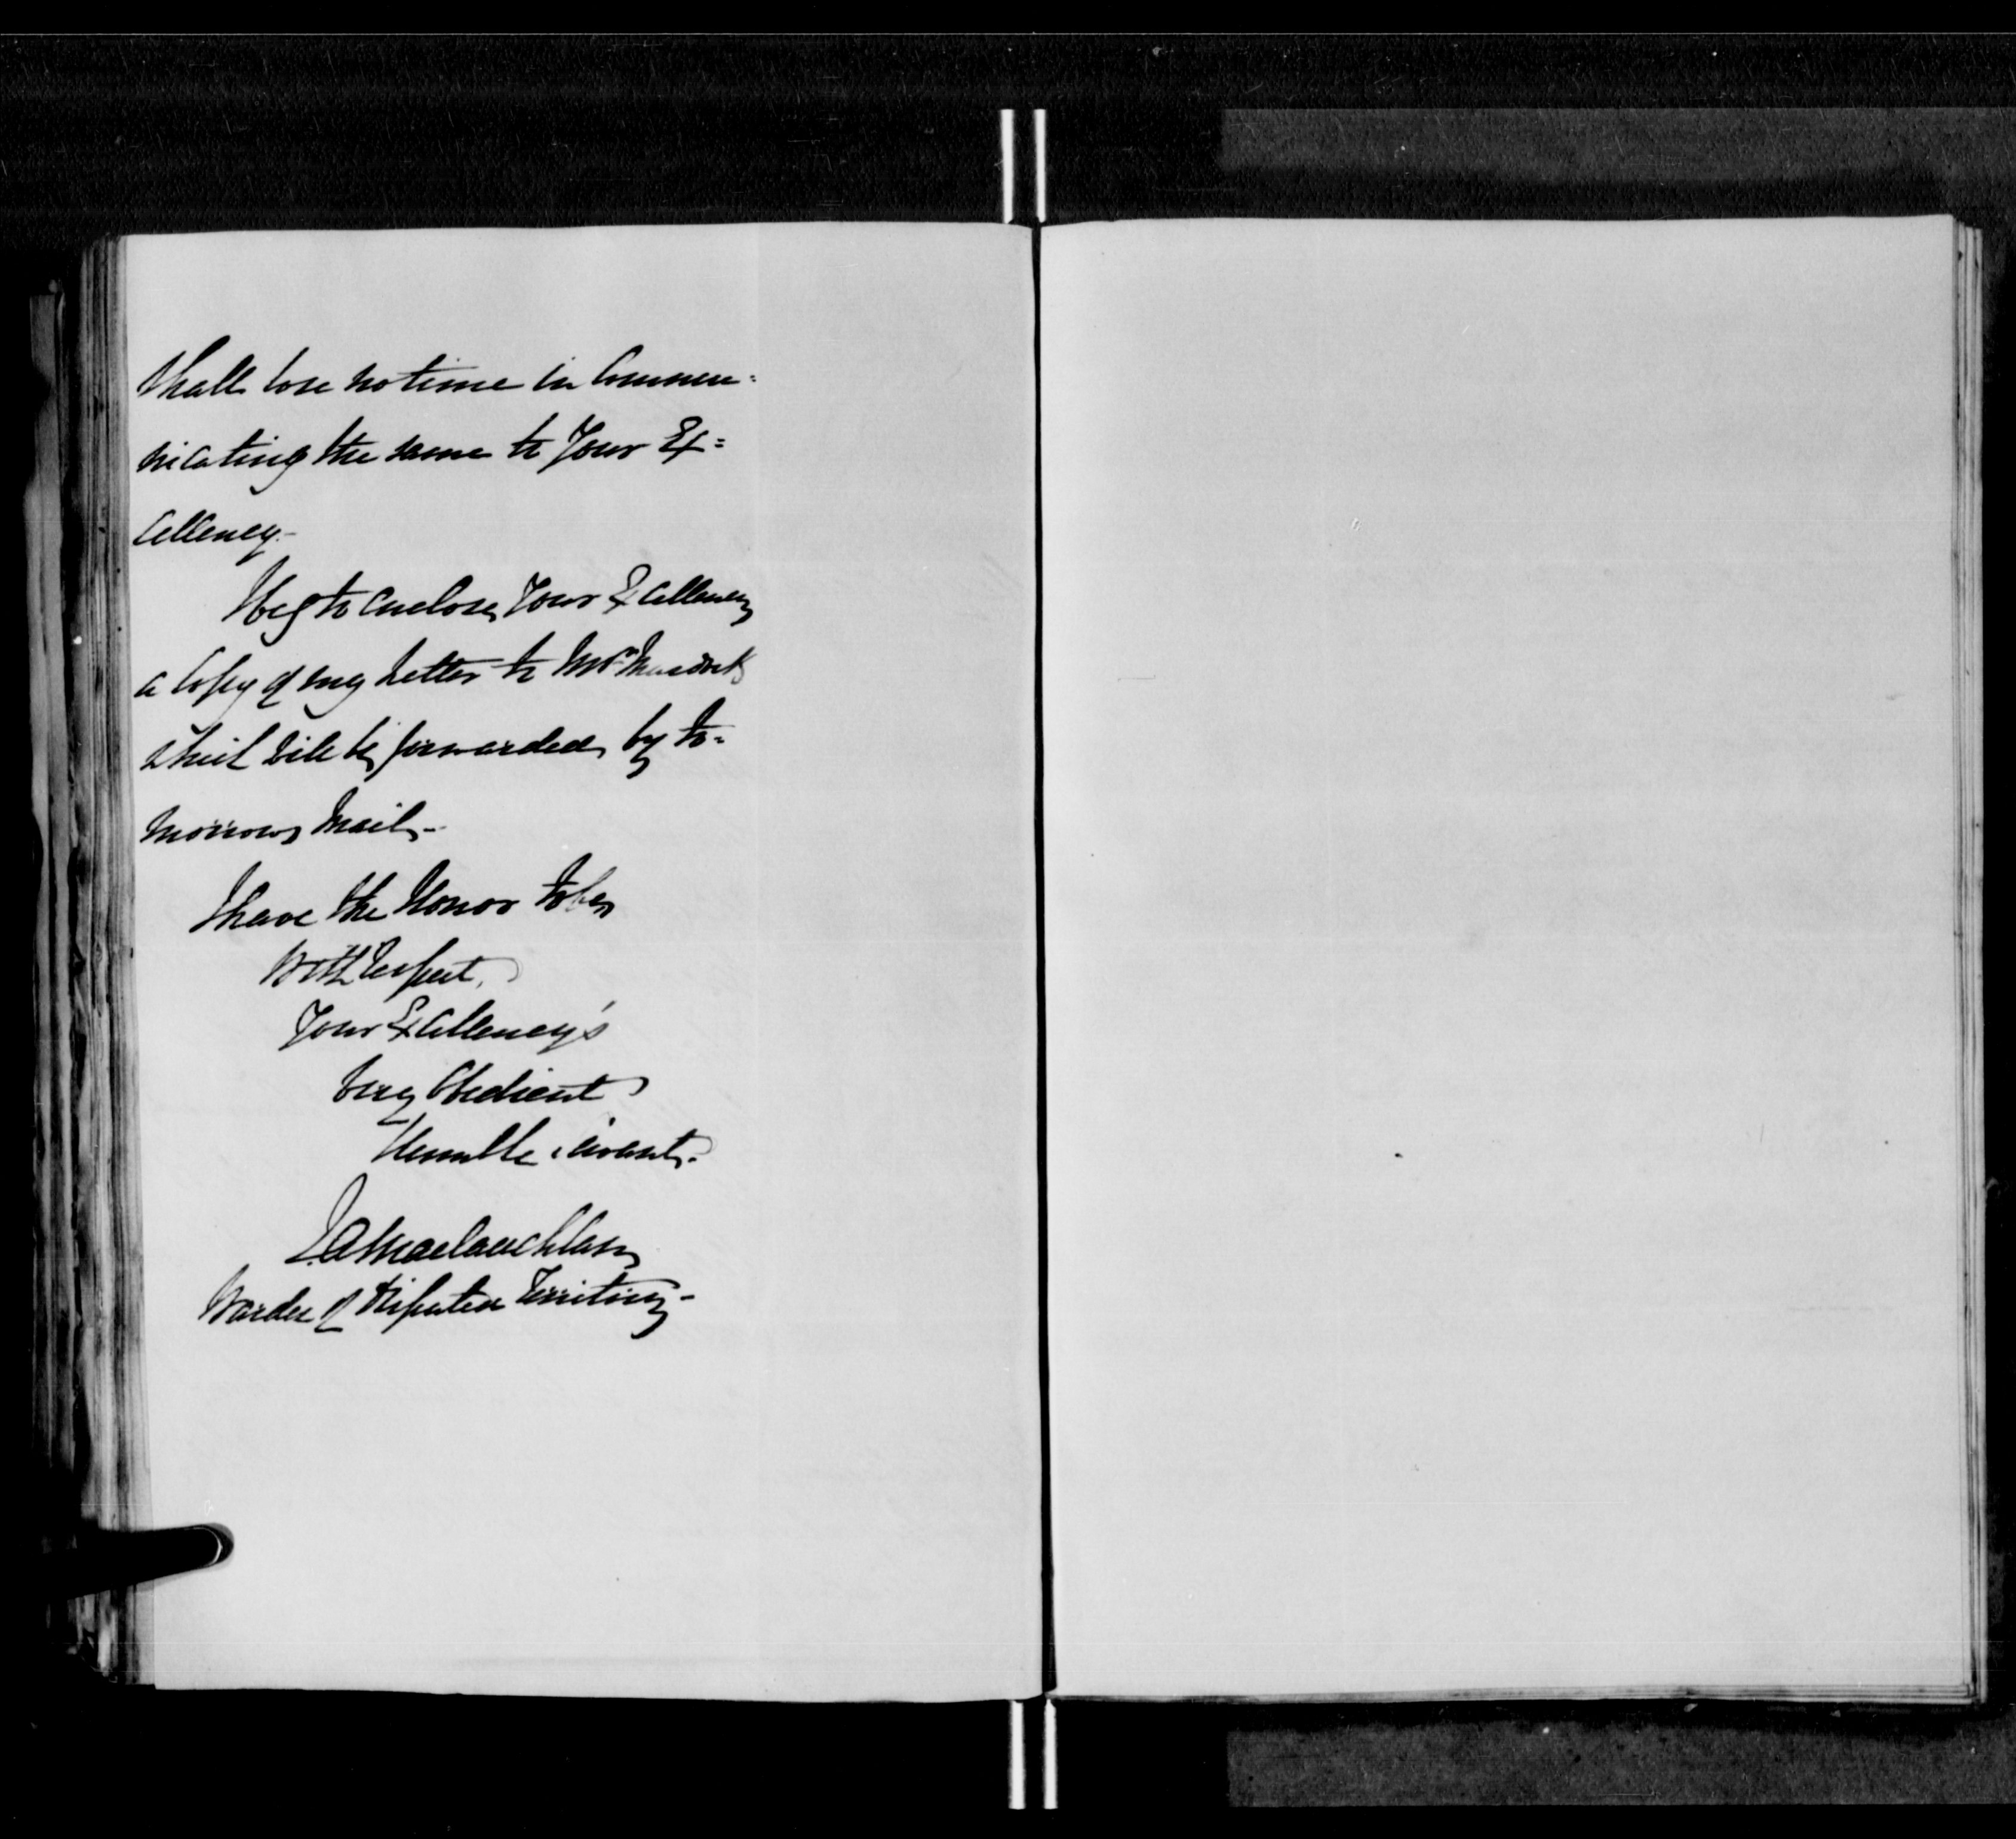 shall lose no time in Commu=
nicating the same to Your Ex=
cellency.-
I beg to enclose, Your Excellency
a Copy of my Letter to Mr Murdock
which will be forwarded by to-
morrows Mail.-
I have the Honor to be
With Respect,
Your Excellency's
Very Obedient
Humble servant.
J.A. Maclauchlan
Warden of Disputed Territory-